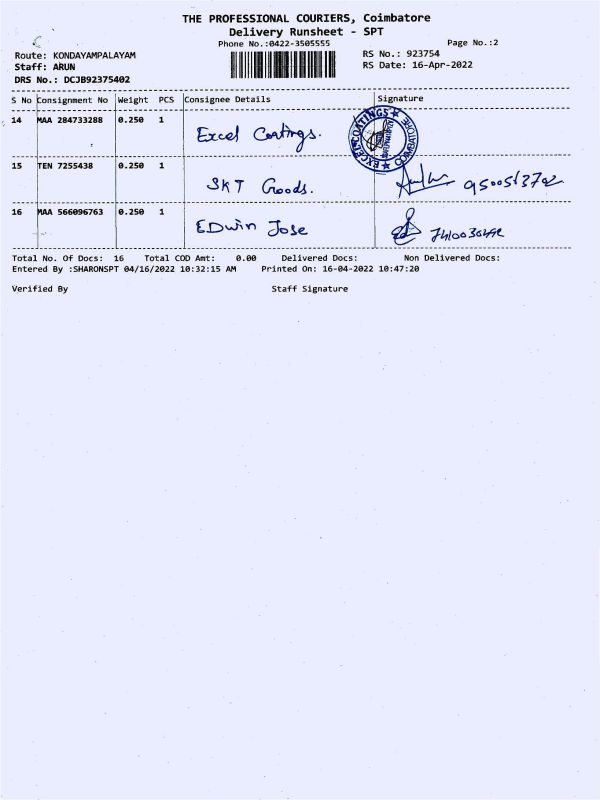 THE PROFESSIONAL COURIERS, Coimbatore
Delivery Runsheet - SPT
Phone No.:0422-3505555
Page No.:2
Route: KONDAYAMPALAYAM
RS No.: 923754
Staff: ARUN
RS Date: 16-Apr-2022
DRS No.: DCJB92375402
S No Consignment No Weight PCS Consignee Details Signature
14 MAA 284733288 0.250 1 Excel Coatings.
EXCEL COATINGS COIMBATORE
15 TEN 7255438 0.250 1 SKT Goods.
16 MAA 566096763 0.250 1 EDwin Jose
Total No. Of Docs: 16 Total COD Amt: 0.00 Delivered Docs: Non Delivered Docs:
Entered By :SHARONSPT 04/16/2022 10:32:15 AM Printed On: 16-04-2022 10:47:20
Verified By Staff Signature